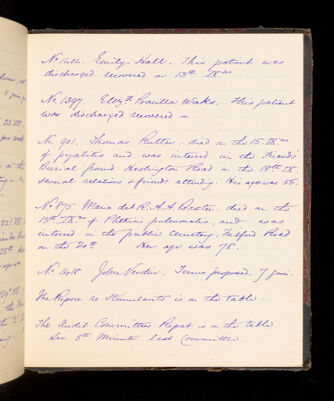 No. 1484. Emily Hall. This patient was
discharged recovered on 13th IX mo
No. 1397. Elizth Priscilla Weeks. This patient
was discharged recovered on
No. 901. Thomas Rutter died on the 15 IX mo
of pyelitis and was interred in the Friends
Burial ground Heslington Road on the 18th IX
several relatives & friends attending. His age was 55.
No 875 Maria del R. A. A. died on the
15th IX mo of Phthisis pulmonalis, and was
interred in the public cemetery, Fulford Road
on the 20th Her age was 78.
No 1418 John Terms proposed. 7 Guin.
The Report re Stimulants is on the table.
The Audit Committees Report is on the table
See 5th Minute last Committee.